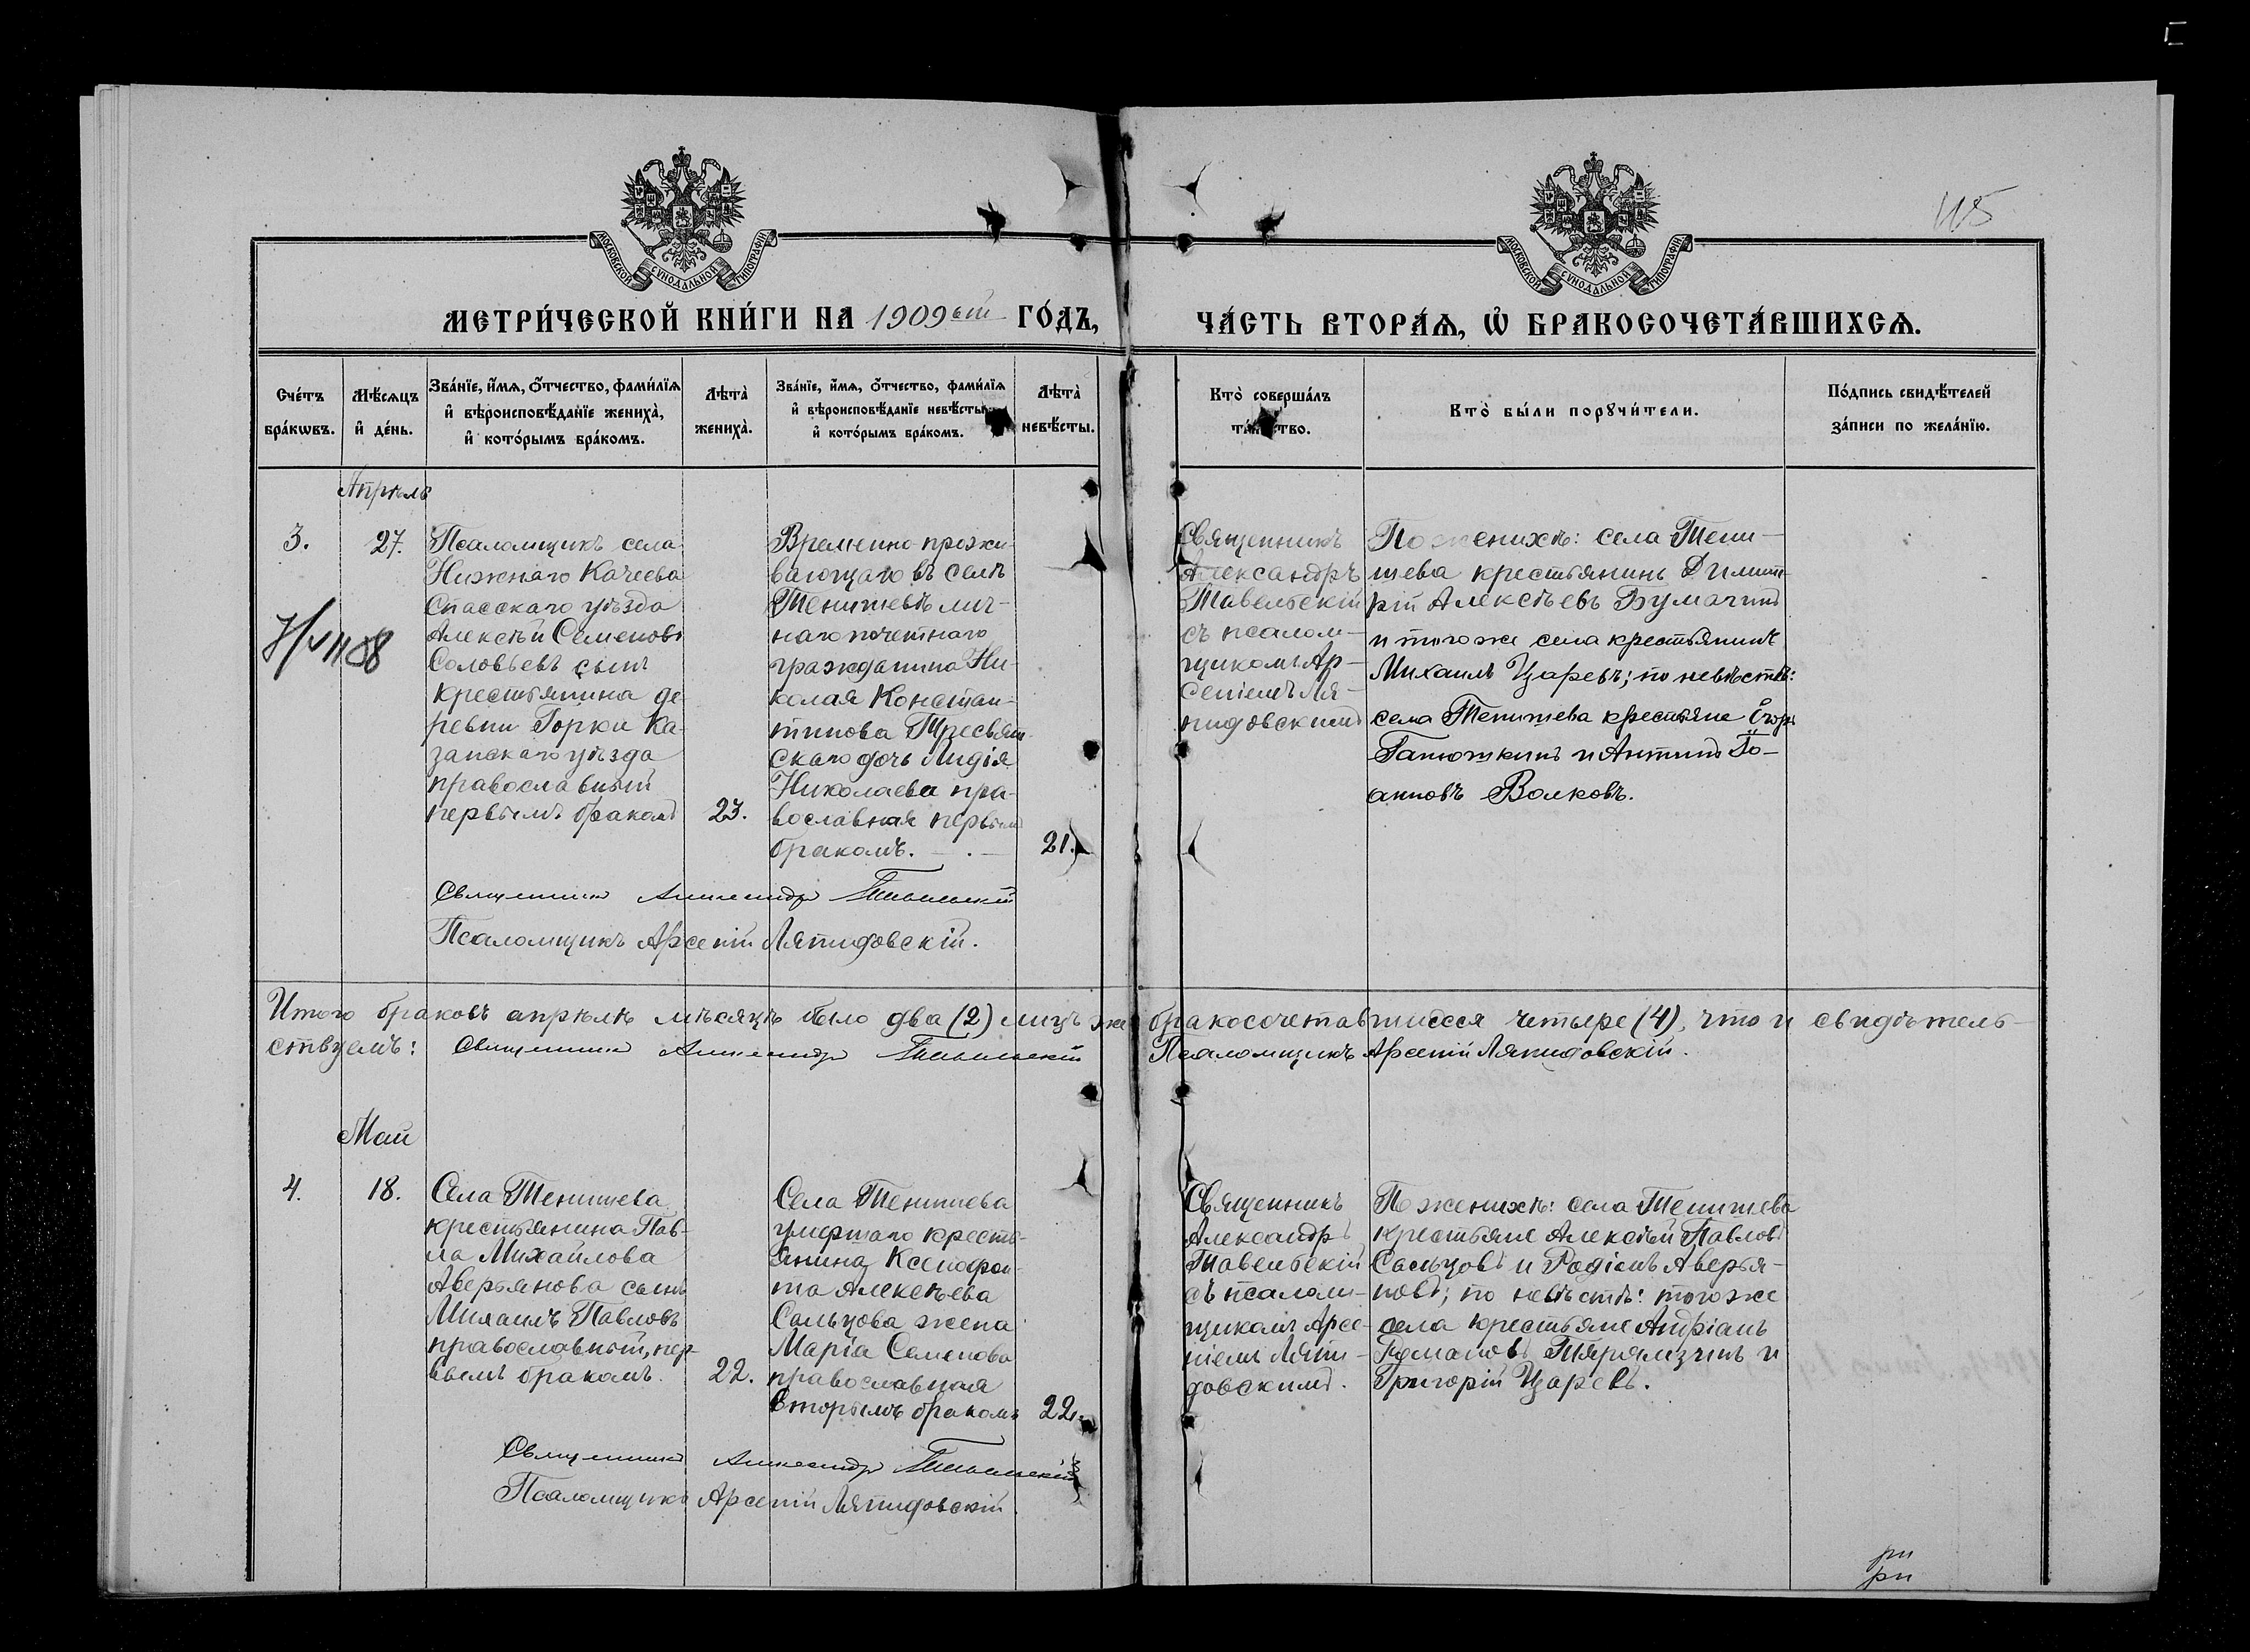 115
МОСКОВСКОЙ СѴНОДАЛЬНОЙ ТИПОГРАФІИ
МОСКОВСКОЙ СѴНОДАЛЬНОЙ ТИПОГРАФІИ
МЕТРИ́ЧЕСКОЙ КНИ́ГИ НА 1909ый ГО́ДЪ,
ЧА́СТЬ ВТОРА́Ѧ, Ѡ҆ БРАКОСОЧЕТА́ВШИХСѦ.
Сче́тъ
бра́кѡвъ.
Мѣ́сѧцъ
и҆ де́нь.
Зва́нїе, и҆́мѧ, ѻ҆́тчество, фами́лїѧ
и҆ вѣроисповѣ́данїе жениха̀,
и҆ кото́рымъ бра́комъ.
Лѣта̀
жениха̀.
Зва́нїе, и҆́мѧ, ѻ҆́тчество, фами́лїѧ
и҆ вѣроисповѣ́данїе невѣ́сты,
и҆ кото́рымъ бра́комъ.
Лѣта̀
невѣ́сты.
Кто̀ соверша́лъ
та́инство.
Кто̀ бы́ли порꙋчи́тели.
По́дпись свидѣ́телей
за́писи по жела́нїю.
Апрѣль
3.
27.
Псаломщикъ села
Нижняго Качеева
Спасскаго уѣзда
Алексѣй Семеновъ
Соловьевъ сынъ
крестьянина де-
ревни Горки Ка-
занскаго уѣзда
православный
первымъ бракомъ
23.
Временно прожи-
вающаго въ селѣ
Тенишевѣ лич-
наго почетнаго
гражданина Ни-
колая Констан-
тинова Тресвят-
скаго дочь Лидія
Николаева пра-
вославная первымъ
бракомъ.
21.
Священникъ
Александръ
Тавельскій
съ псалом-
щикомъ Ар-
сеніемъ Ля-
пидовскимъ
По женихѣ: села Тени-
шева крестьянинъ Димит-
рій Алексѣевъ Бумагинъ
и того же села крестьянинъ
Михаилъ Царевъ; по невѣстѣ:
села Тенишева крестьяне Егоръ
Ганюшкинъ и Антипъ Іо-
анновъ Волковъ.
Священникъ Александръ Тавельскій
Псаломщикъ Арсеній Ляпидовскій.
Итого браковъ апрѣлѣ мѣсяцѣ было два (2) лицъ же бракосочетавшиеся четыре (4), что и свидѣтель-
ствуемъ: Священникъ Александръ Тавельскій Псаломщикъ Арсеній Ляпидовскій.
Май
4.
18.
Села Тенишева
крестьянина Пав-
ла Михайлова
Аверьянова сынъ
Михаилъ Павловъ
православный, пер-
вымъ бракомъ.
22.
Села Тенишева
умершаго кресть-
янина Ксенофон-
та Алексѣева
Сальцова жена
Марія Семенова
православная
вторымъ бракомъ
22.
Священникъ
Александръ
Тавельскій
съ псалом-
щикомъ Арсе-
ніемъ Ляпи-
довскимъ.
По женихѣ: села Тенишева
крестьяне Алексѣй Павловъ
Сальцовъ и Родіонъ Аверья-
новъ; по невѣстѣ: того же
села крестьяне Андріанъ
Романовъ и
Григорій Царевъ.
Священникъ Александръ Тавельскій
Псаломщикъ Арсеній Ляпидовскій.